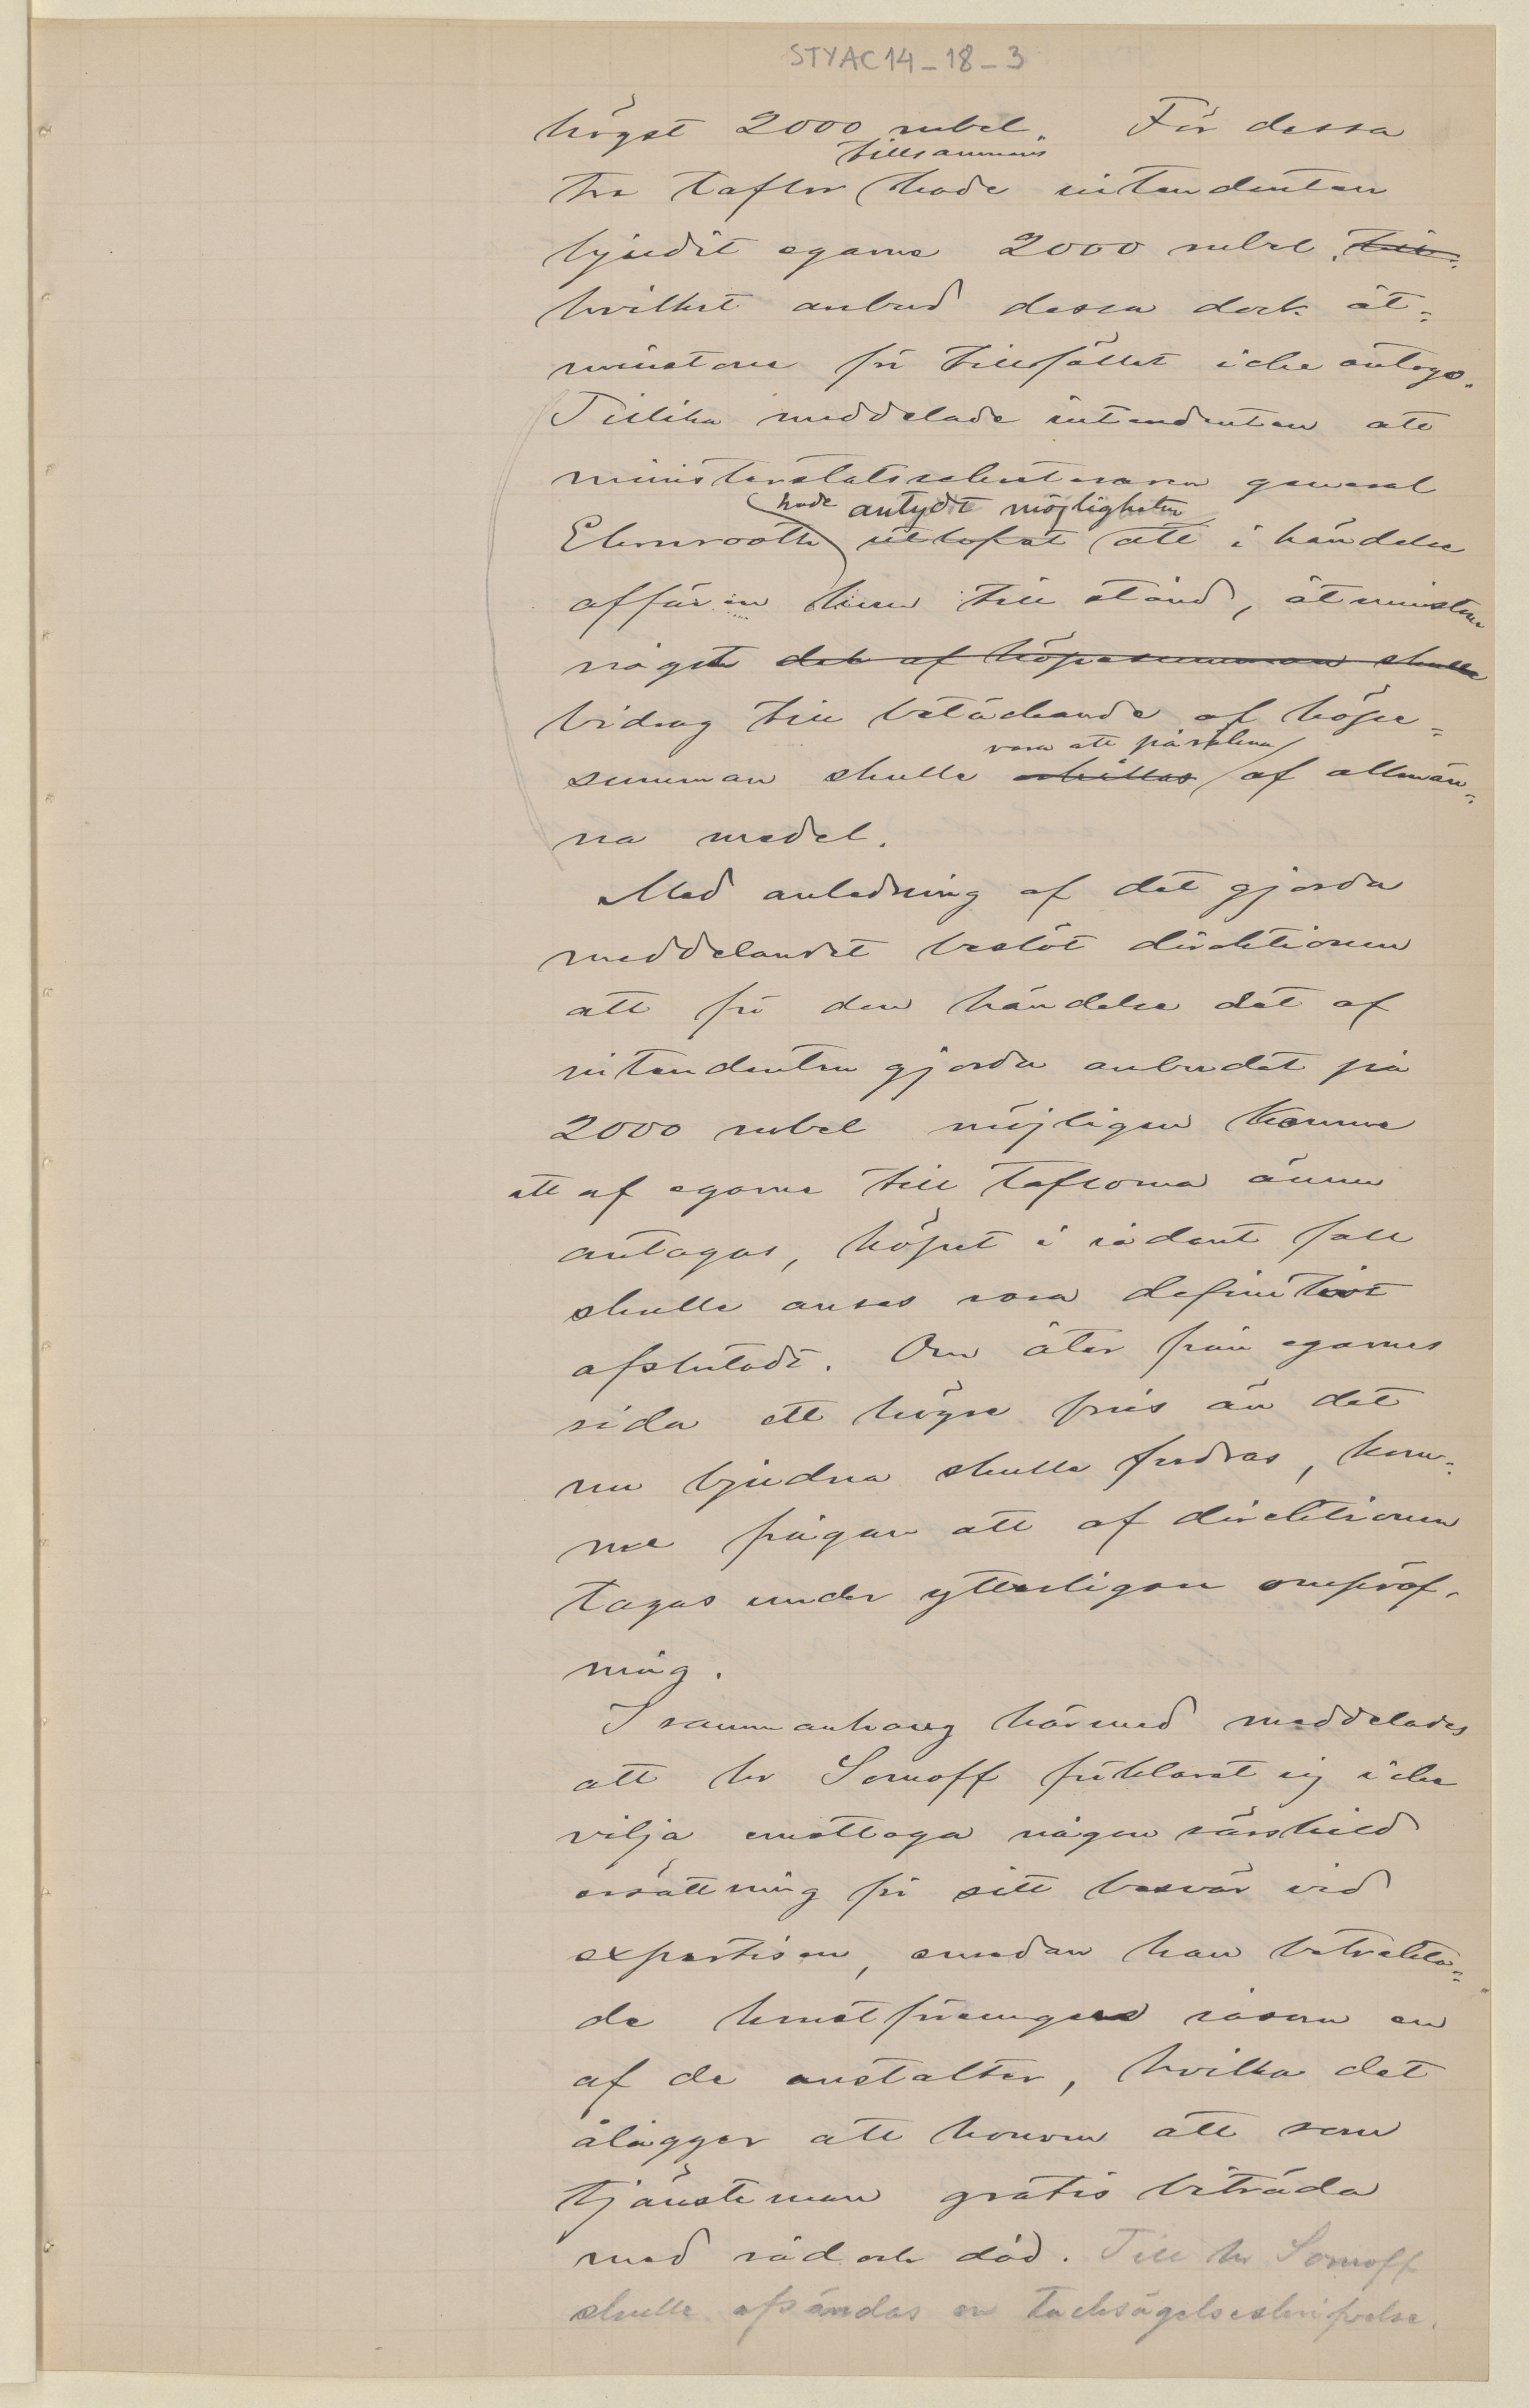 STYAC14-18-3
högst 2000 rubel. För dessa
tillsammans
tre taflor hade intendenten
bjudit egarne 2000 rubel, till
hvilket anbud dessa dock åt-
minstone för tillfället icke antogo.
Tillika meddelade intendenten att
ministerstatssekreteraren general
hade antydt möjligheten
Ehrnrooth utlofvat att i händelse
affären kom till stånd, åtminstone
något del af köpesumman skulle
bidrag till betäckande af köpe-
vara att påräkna
summan skulle erhållas af allmän-
na medel.
Med anledning af det gjorda
meddelandet beslöt direktionen
att för den händelse det af
intendenten gjorda anbudet på
2000 rubel möjligen komme
att af egarne till taflorna ännu
antagas, köpet i sådant fall
skulle anses som definitivt
afslutadt. Om åter från egarnes
sida ett högre pris än det
nu bjudna skulle fordras, kom-
me frågan att af direktionen
tagas under ytterligare ompröf-
ning.
I sammanhang härmed meddelades
att hr Somoff förklarat sig icke
vilja emottaga någon särskild
ersättning för sitt besvär vid
expertisen, emedan han betrakta-
de konstföreningen såsom en
af de anstalter, hvilka det
ålägger att honom att som
tjänsteman gratis biträda
med råd och dåd. Till hr Somoff
skulle afsändas en tacksägelseskrifvelse.